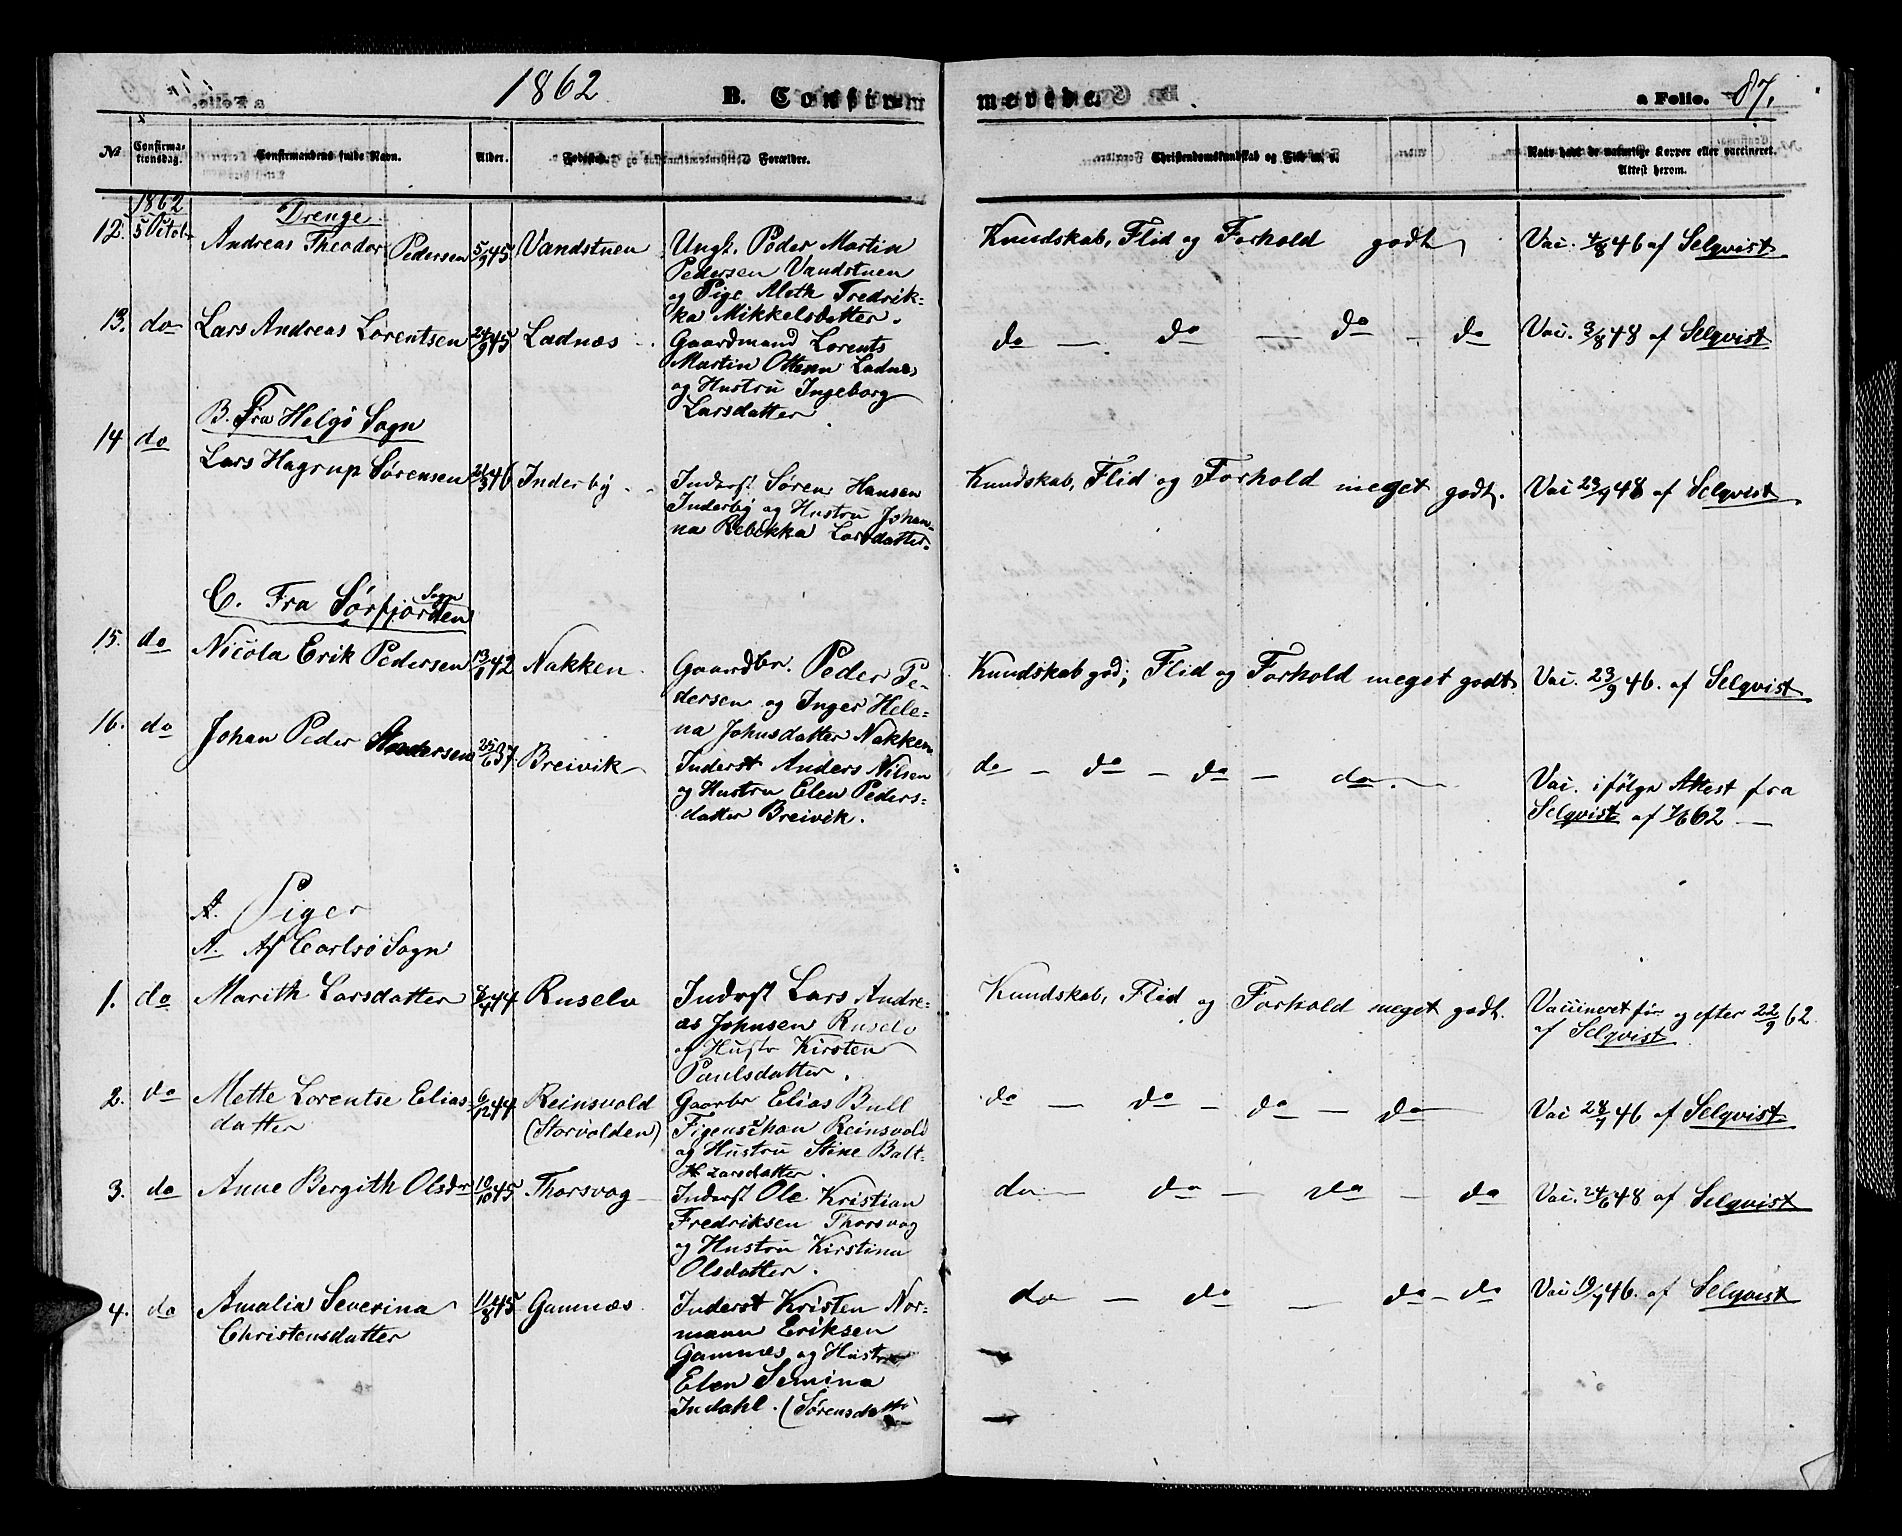 1862 B. Confirmerede. a Folio. 87.
No. Confirmationsdag. Confirmandens fulde Navn. Alder. Fødested. Forældre. Christendomskundskab og Flid m. v. Naar havt de naturlige Kopper eller vaccineret. Attest herom.
1862 Drenge.
12. 5 Octob. Andreas Theodor Pedersen 5/9 45 Vandstuen Ungk. Peder Martin Kundskab, Flid og Forhold godt Vac. 4/8 46 af Selqvist
Pedersen Vandstuen
og Pige Aleth Fredrik-
ka Mikkelsdatter.
13. do Lars Andreas Lorentsen 24/9 45 Ladnæs Gaardmand Lorents do - do - do - do Vac. 3/8 48 af Selqvist
Martin Ottesen Ladnæs
og Hustru Ingeborg
Larsdatter
B. Fra Helgø Sogn
14 do Lars Hagrup Sørensen 21/3 46 Inderby Inderst Søren Hansen Kundskab, Flid og Forhold meget godt. Vac 23/9 48 af Selqvist
Inderby og Hustru Johan-
na Rebekka Larsdatter.
C. Fra Sørfjorden Sogn
15. do Nicola Erik Pedersen 13/1 42 Nakken Gaardbr. Peder Pe- Kundskab god; Flid og Forhold meget godt Vac. 23/9 46. af Selqvist
dersen og Inger Hele-
na Johnsdatter Nakken
16. do Johan Peder Andersen 25/6 37 Breivik Inderst Anders Nilsen do - do - do - do Vac. ifølge Attest fra
og Hustru Elen Peders- Selqvist af 7/6 62
datter Breivik.
A. Piger
A. Af Carlsø Sogn
1. do Marith Larsdatter 44 Ruselv Inderst Lars Andre- Kundskab, Flid og Forhold meget godt. Vaccineret før og efter 22/9 62
as Johnsen Ruselv af Selqvist
og Hustr Kirsten
Paulsdatter.
2. do Mette Lorentse Elias- 6/12 44 Reinsvold Gaarbr Elias Bull do - do - do - do Vac 28/7 46 af Selqvist
datter (Storvolden) Figenschau Reinsvold
og Hustru Stine Balt-
H Larsdatter.
3. do Anne Bergith Olsdr 10/10 45 Thorsvag Inderst Ole Kristian do - do - do - do Vac. 24/6 48 af Selqvist
Fredriksen Thorsvag
og Hustru Kirstina
Olsdatter.
4. do Amalia Severina 11/8 45 Gamnæs Inderst Kristen Nor- do - do - do - do Vac 19/7 46. af Selqvist
Christensdatter mann Eriksen
Gamnæs og Hustr
Elen Semina
Indahl. (Sørensdatt